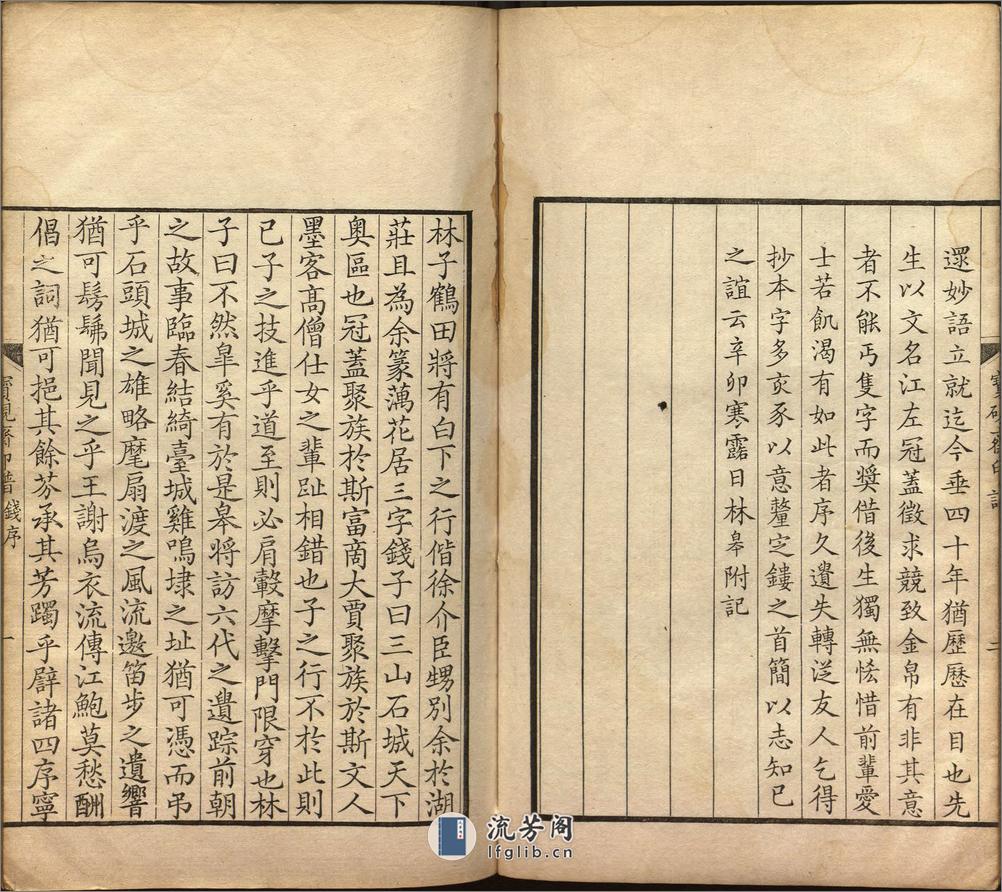 還妙語立就迄今垂四十年猶歷歷在目也先
生以文名江左冠蓋徵求競致金帛有非其意
者不能丐隻字而奬借後生獨無恡惜前輩愛
士若飢渴有如此者序久遺失轉從友人乞得
抄本字多亥豕以意釐定鏤之首簡以志知己
之誼云辛卯寒露日林皋附記
林子鶴田將有白下之行偕徐介臣甥別余於湖
莊且為余篆藕花居三字錢子曰三山石城天下
奧區也冠蓋聚族於斯富商大賈聚族於斯文人
墨客高僧仕女之輩趾相錯也子之行不於此則
已子之技進乎道至則必肩轂摩擊門限穿也林
子曰不然皐奚有於是皋將訪六代之遺踪前朝
之故事臨春結綺臺城雞鳴埭之址猶可憑而弔
乎石頭城之雄略麾扇渡之風流邀笛步之遺響
猶可髣髴聞見之乎王謝烏衣流傳江鮑莫愁酬
倡之詞猶可挹其餘芬承其芳躅乎辟諸四序寧
寶硯齋印譜 錢序
一
流芳阁
lfglib.cn